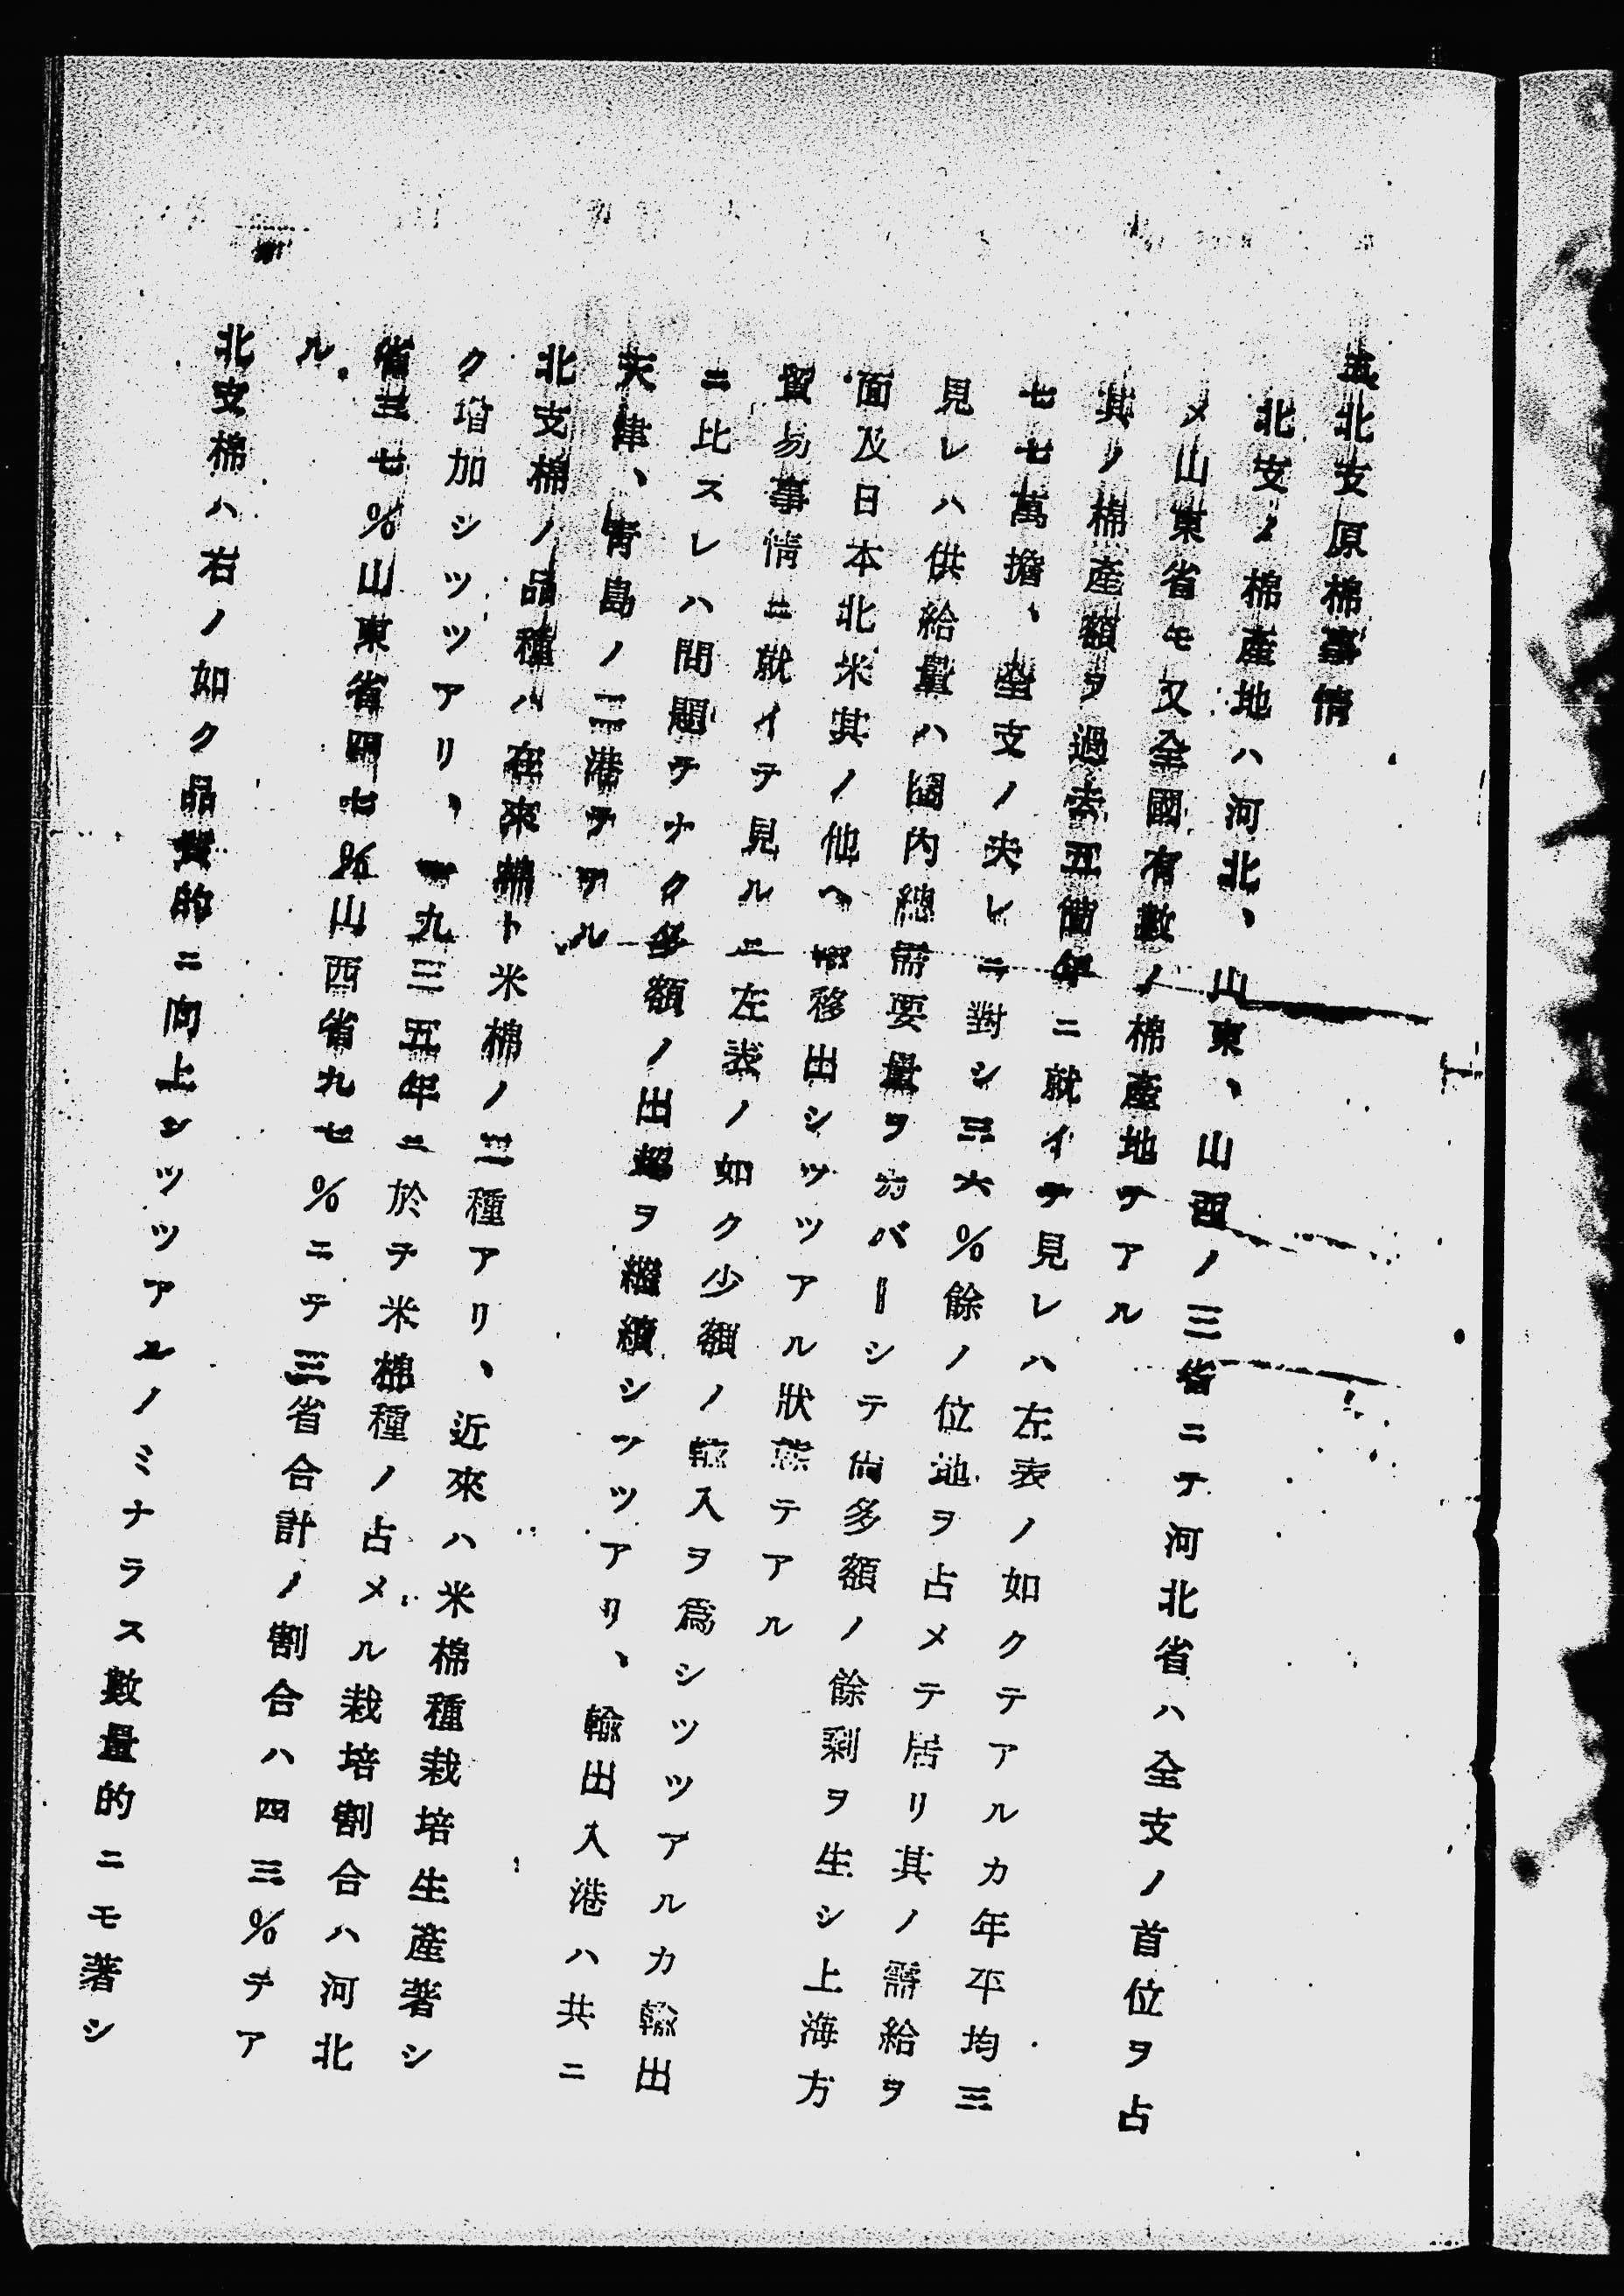 五北支原棉事情
北支ノ棉產地ハ河北、山東、山西ノ三省ニテ河北省ハ全支ノ首位ヲ占
メ山東省モ又全國有數ノ棉產地テアル
其ノ棉產額ヲ過去五個年ニ就イテ見レハ左表ノ如クテアルカ年平均三
七七萬擔、全支ノ夫レニ對シ三六%餘ノ位地ヲ占メテ居リ其ノ需給ヲ
見レハ供給量ハ國內總需要量ヲカバーシテ尚多額ノ餘剩ヲ生シ上海方
面及日本北米其ノ他ヘ移出シツツアル狀態テアル
貿易事情ニ就イテ見ルニ左表ノ如ク少額ノ輸入ヲ爲シツツアルカ輸出
ニ比スレハ問題テナク多額ノ出超ヲ繼續シツツアリ、輸出入港ハ共ニ
天津、靑島ノ二港テアル
北支棉ノ品種ハ在來棉ト米棉ノ二種アリ、近來ハ米棉種栽培生產著シ
ク增加シツツアリ、一九三五年ニ於テ米棉種ノ占メル栽培割合ハ河北
省三七%山東省四七%山西省九七%ニテ三省合計ノ割合ハ四三%テア
ル。
北支棉ハ右ノ如ク品質的ニ向上シツツアルノミナラス數量的ニモ著シ